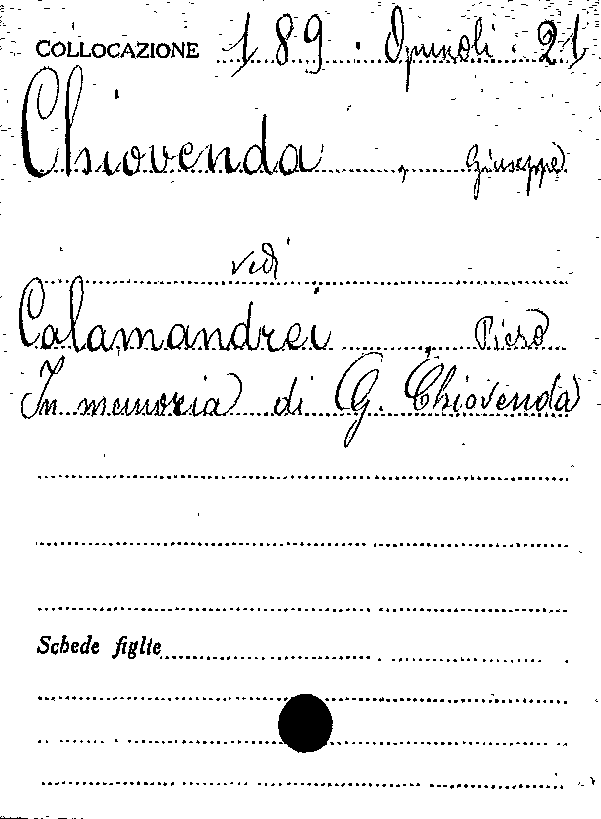 COLLOCAZIONE 189. Opuscoli. 21
Chiovenda, Giuseppe
vedi
Calamandrei, Piero
In memoria di G. Chiovenda
Schede figlie